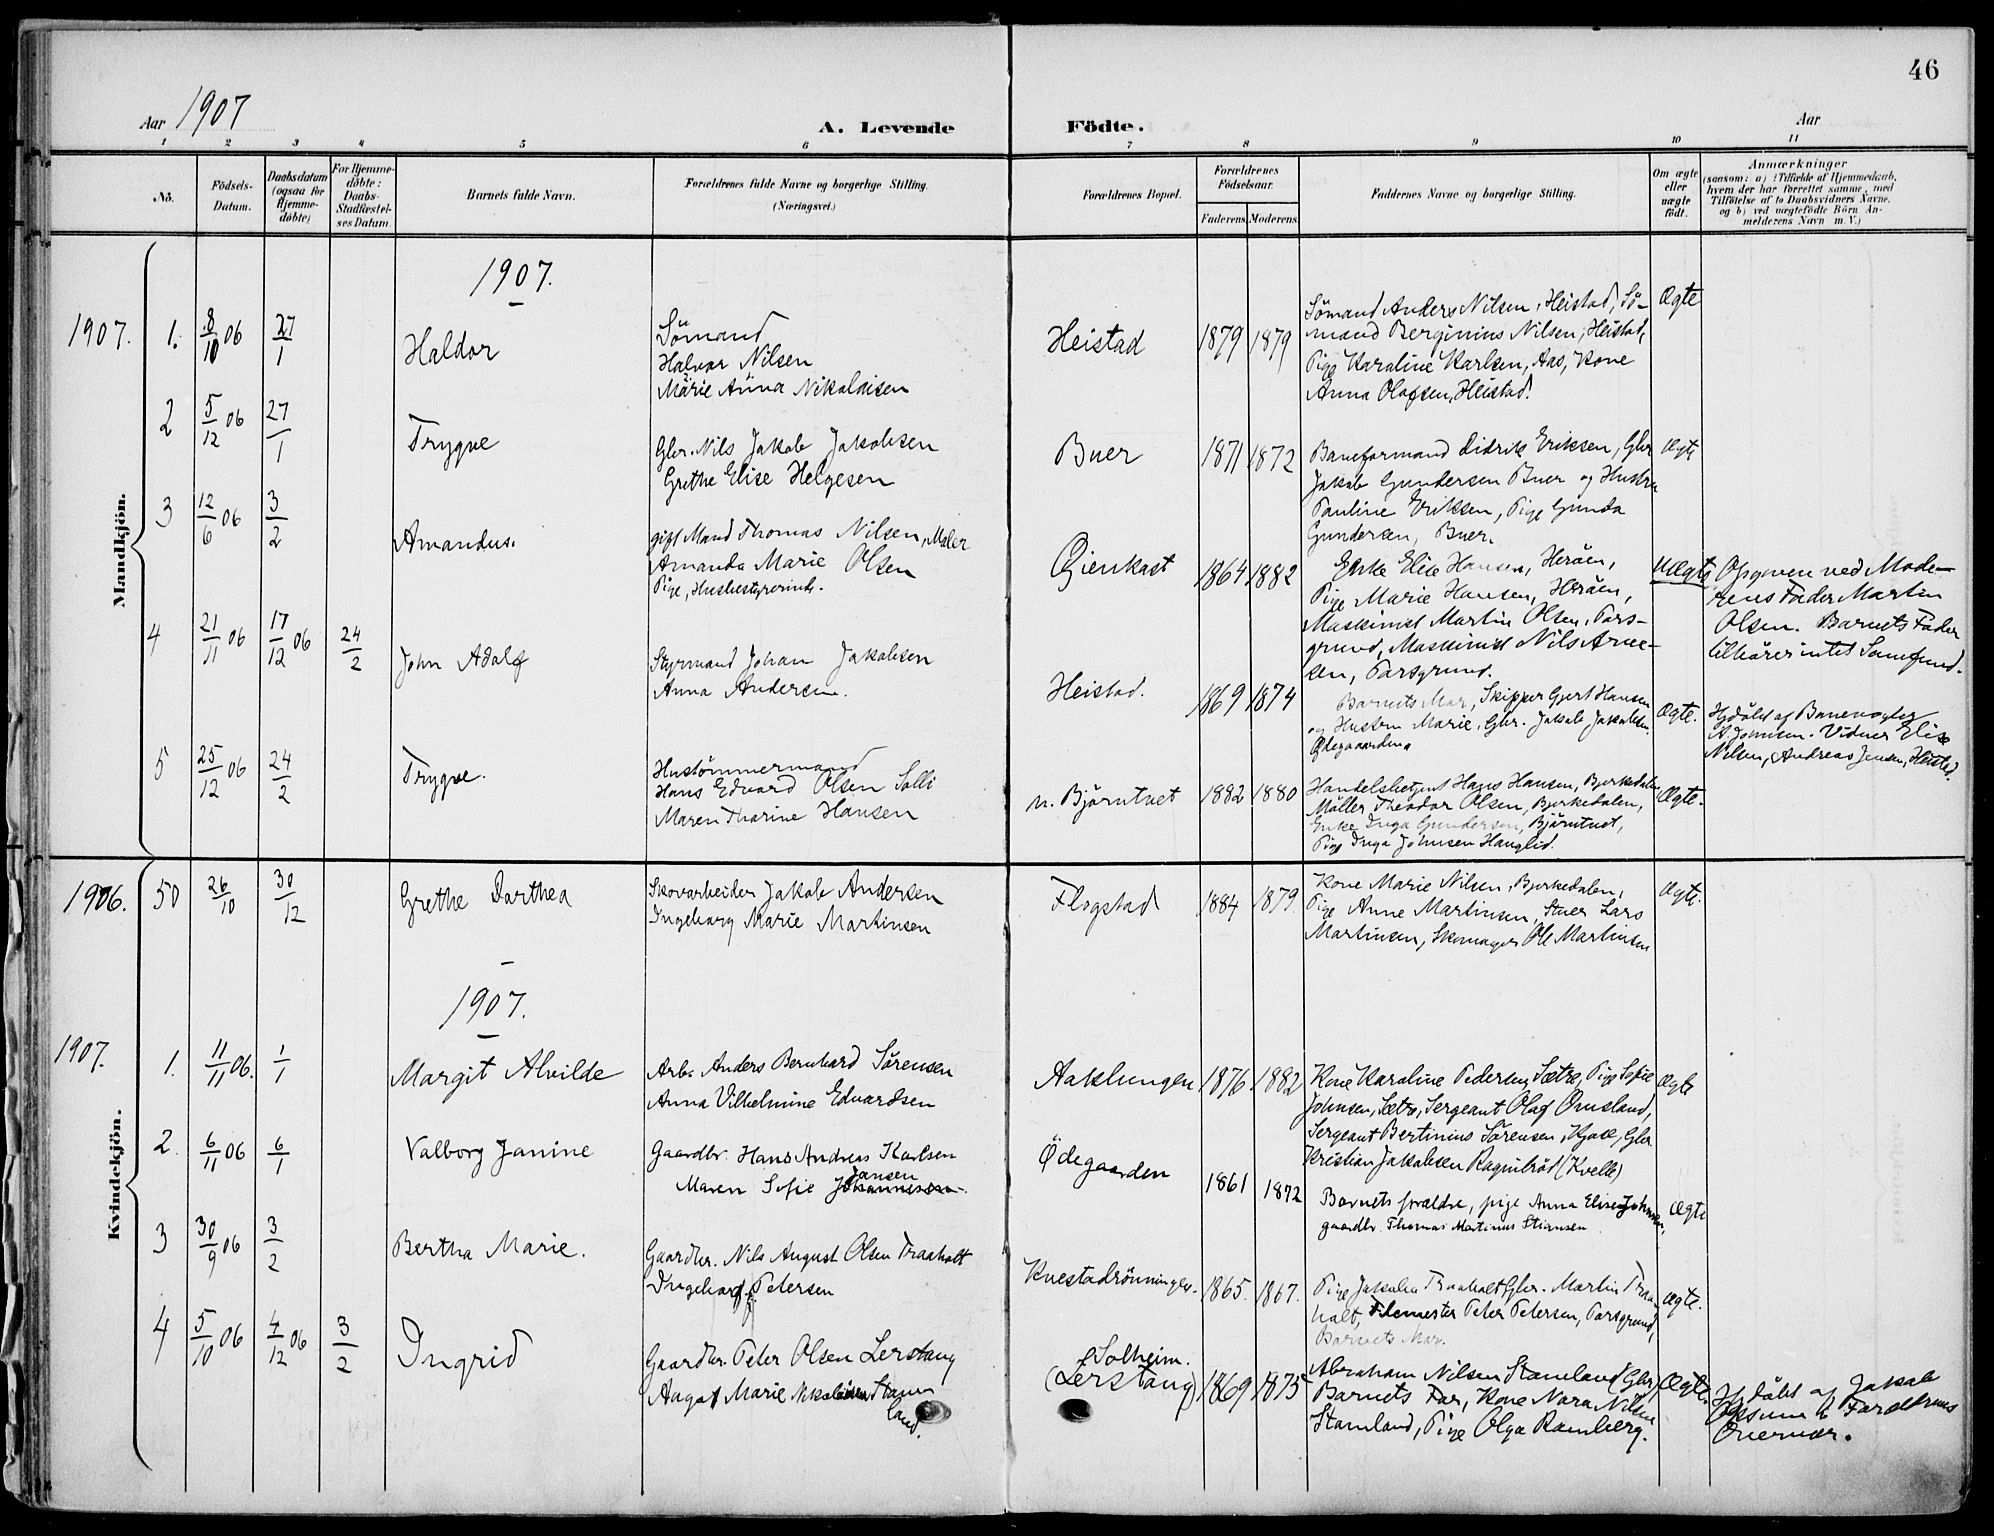 46
Aar 1907
A. Levende Födte.
Aar
1 2 3 4 5 6 7 8 9 10 11
No.
Födsels-
Datum.
Daabsdatum
(ogsaa for
Hjemme-
döbte)
For Hjemme-
döbte:
Daabs-
Stadfæstel-
ses Datum.
Barnets fulde Navn.
Forældrenes fulde Navne og borgerlige Stilling.
(Næringsvei.)
Forældrenes Bopæl.
Forældrenes
Födselsaar.
Faderens. Moderens.
Faddernes Navne og borgerlige Stilling.
Om ægte
eller
uægte
födt.
Anmærkninger
(saasom: a) i Tilfælde af Hjemmedaab,
hvem der har forrettet samme, med
Tilföielse af to Daabsvidners Navne,
og b) ved uægtefödte Börn An-
melderens Navn m. V.)
Mandkjön.
1907.
1907. 1. 8/10 06 27/1 Haldor
Sömand
Halvor Nilsen
Marie Anna Nikolaisen
Heistad 1879 1879
Sömand Anders Nilsen, Heistad, Sö-
mand Berginius Nilsen, Heistad,
Pige Karoline Karlsen, Aas, Kone
Anna Olafsen, Heistad.
Ægte
2 5/12 06 27/1 Trygve
Gbr. Nils Jakob Jakobsen
Grethe Elise Helgesen
Buer 1871 1872
Baneformand Didrik Eriksen, Gbr
Jakob Gundersen Buer og Hustru
Pauline Eriksen, Pige Gunda
Gundersen, Buer.
Ægte
3 12/6 06 3/2 Amandus.
gift Mand Thomas Nilsen, Maler
Amanda Marie Olsen
Pige, Husbestyrerinde.
Øienkast 1864 1882
Enke Elise Hansen, Heröen,
Pige Marie Hansen, Heröen,
Maskinist Martin Olsen, Pors-
grund, Maskinist Nils Arne-
sen, Porsgrund.
Uægte
Opgiven ved Mode-
rens Fader Martin
Olsen. Barnets Fader
tilhörer intet Samfund.
4 21/11 06 17/12 06 24/2 John Adolf
Styrmand Johan Jakobsen
Anna Andersen.
Heistad. 1869 1874
Barnets Mor, Skipper Gjert Hansen
og Hustru Marie, Gbr. Jakob Jakobsen
Ødegaarden
Ægte.
Hjdöbt af Banevogter
A. Jonnsen. Vidner Elise
Nilsen, Andreas Jensen, Heistad.
5 25/12 06 24/2 Trygve.
Hustömmermand
Hans Edvard Olsen Solli
Maren Thorine Hansen
n. Björntvet 1882 1880
Handelsbetjent Hans Hansen, Bjerkedalen
Möller Theodor Olsen, Bjerkedalen,
Enke Inga Gundersen, Björntvet,
Pige Inga Johnsen Hauglid.
Ægte.
Kvindekjön.
1906. 50 26/10 30/12 Grethe Dorthea
Skovarbeider Jakob Andersen
Ingeborg Marie Martinsen
Flogstad 1884 1879.
Kone Marie Nilsen, Bjerkedalen,
Pige Anne Martinsen, Stuer Lars
Martinsen, Skomager Ole Martinsen
Ægte.
1907.
1907. 1. 11/11 06. 1/1 Margit Alvilde
Arb. Anders Bernhard Sörensen
Anna Vilhelmine Edvardsen
Aaklungen 1876 1882
Kone Karoline Pedersen, Sætre, Pige Sofie
Johnsen, Sætre, Sergeant Olaf Omsland,
Sergeant Bertinius Sörensen, Kjose, Gbr
Kristian Jakobsen Ragnibröd (Kvelle)
Ægte
2. 6/11 06 6/1 Valborg Janine
Gaardbr. Hans Andreas Karlsen
Jansen
Maren Sofie Johannesen.
Ödegaarden 1861 1872
Barnets forældre, pige Anna Elise Johnsen,
gaardbr. Thomas Martinus Stiansen
Ægte
3 30/9 06 3/2 Bertha Marie.
Gaardbr. Nils August Olsen Traaholt
Ingeborg Petersen
Knestadrönningen. 1865. 1867.
Pige Jakobea Traaholt, Gbr. Martin Traa-
holt, Filemester Peter Petersen, Porsgrund,
Barnets Mor.
Ægte.
4 5/10 06 4/12 06 3/2 Ingrid
Gaardbr. Peter Olsen Lerstang
Aagot Marie Nikolaisen Stam
land.
Solheim.
(Lerstang) 1869 1875
Abraham Nilsen Stamland (Gbr)
Barnets Far, Kone Nora Nilsen
Stamland, Pige Olga Ramberg.
Ægte.
Hjdöbt af Jakob
Forældrenes
Overvær.